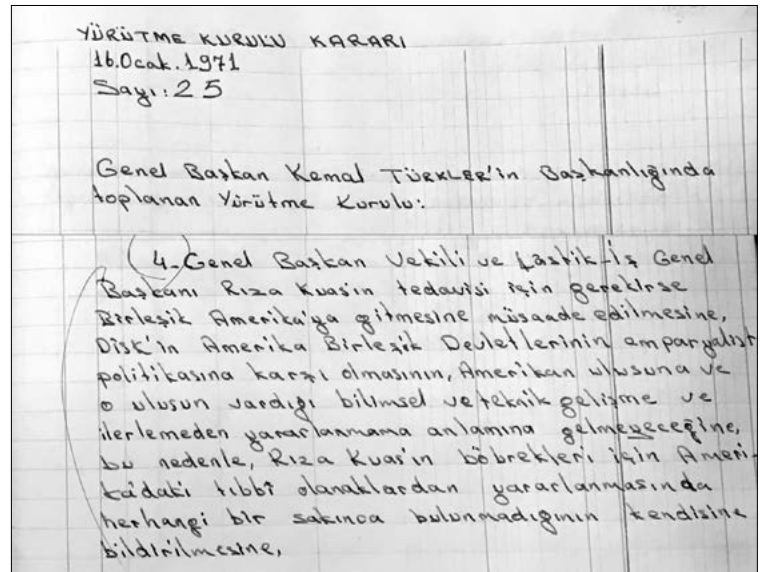 YÜRÜTME KURULU KARARI
16.Ocak.1971
Sayı: 25
Genel Başkan Kemal TÜRKLER'in Başkanlığında
toplanan Yürütme Kurulu:
4-Genel Başkan Vekili ve Lâstik-İş Genel
Başkanı Rıza Kuas'ın tedavisi için gerekirse
Birleşik Amerika'ya gitmesine müsaade edilmesine,
DİSK'in Amerika Birleşik Devletlerinin emparyalist
politikasına karşı olmasının, Amerikan ulusuna ve
o ulusun vardığı bilimsel ve teknik gelişme ve
ilerlemeden yararlanmama anlamına gelmeyeceğine,
bu nedenle, Rıza Kuas'ın böbrekleri için Ameri-
ka'daki tıbbî olanaklardan yararlanmasında
herhangi bir sakınca bulunmadığının kendisine
bildirilmesine,